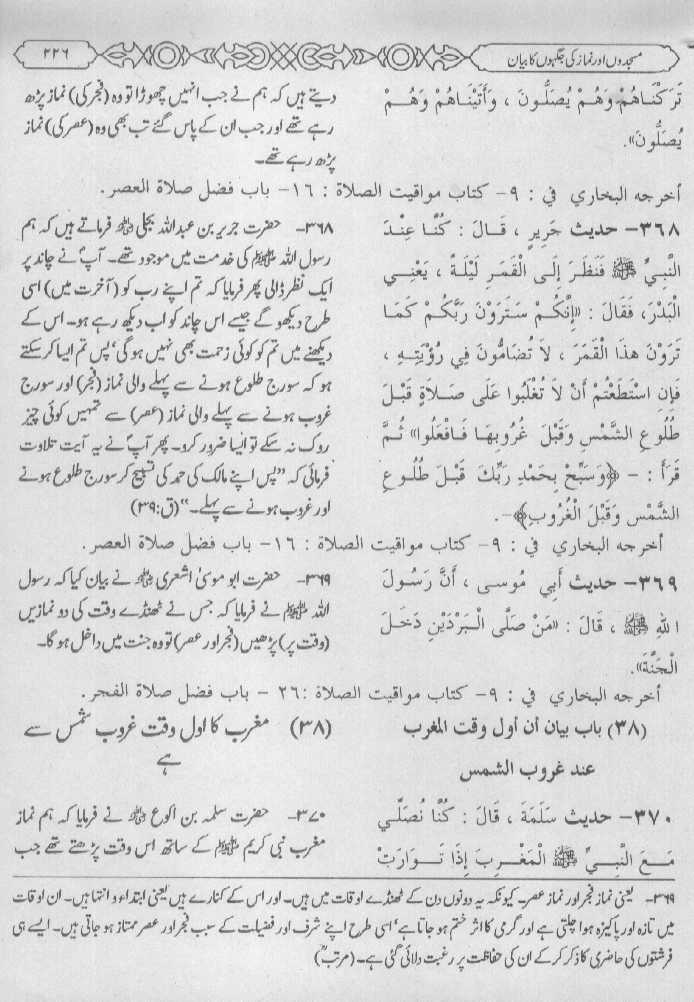 مسجدوں اور نماز کی جگہوں کا بیان
۲۲۶
تَرَكْنَاهُمْ وَهُمْ يُصَلُّونَ ، وَأَتَيْنَاهُمْ وَهُمْ
يُصَلُّونَ».
دیتے ہیں کہ ہم نے جب انہیں چھوڑا تو وہ (فجر کی) نماز پڑھ
رہے تھے اور جب ان کے پاس گئے تب بھی وہ (عصر کی) نماز
پڑھ رہے تھے۔
أخرجه البخاري في : ٩- كتاب مواقيت الصلاة : ١٦- باب فضل صلاة العصر.
٣٦٨- حديث جَرِيرٍ ، قَالَ : كُنَّا عِنْدَ
النَّبِيِّ ﷺ فَنَظَرَ إِلَى الْقَمَرِ لَيْلَةً ، يَعْنِي
الْبَدْرَ، فَقَالَ : «إِنَّكُمْ سَتَرَوْنَ رَبَّكُمْ كَمَا
تَرَوْنَ هذَا الْقَمَرَ ، لاَ تُضَامُّونَ فِي رُؤْيَتِهِ ،
فَإِنِ اسْتَطَعْتُمْ أَنْ لاَ تُغْلَبُوا عَلَى صَلاَةٍ قَبْلَ
طُلُوعِ الشَّمْسِ وَقَبْلَ غُرُوبِهَا فَافْعَلُوا» ثُمَّ
قَرَأَ : - ﴿وَسَبِّحْ بِحَمْدِ رَبِّكَ قَبْلَ طُلُوعِ
الشَّمْسِ وَقَبْلَ الْغُرُوبِ﴾-.
۳۶۸- حضرت جریر بن عبداللہ بجلی رضی اللہ عنہ فرماتے ہیں کہ ہم
رسول اللہ ﷺ کی خدمت میں موجود تھے۔ آپؐ نے چاند پر
ایک نظر ڈالی پھر فرمایا کہ تم اپنے رب کو (آخرت میں) اسی
طرح دیکھو گے جیسے اس چاند کو اب دیکھ رہے ہو۔ اس کے
دیکھنے میں تم کو کوئی زحمت بھی نہیں ہوگی‘ پس تم ایسا کر سکتے
ہو کہ سورج طلوع ہونے سے پہلے والی نماز (فجر) اور سورج
غروب ہونے سے پہلے والی نماز (عصر) سے تمہیں کوئی چیز
روک نہ سکے تو ایسا ضرور کرو۔ پھر آپؐ نے یہ آیت تلاوت
فرمائی کہ ”پس اپنے مالک کی حمد کی تسبیح کر سورج طلوع ہونے
اور غروب ہونے سے پہلے۔“ (ق:۳۹)
أخرجه البخاري في : ٩- كتاب مواقيت الصلاة : ١٦- باب فضل صلاة العصر.
٣٦٩- حديث أَبِي مُوسى ، أَنَّ رَسُولَ
اللهِ ﷺ ، قَالَ : «مَنْ صَلَّى الْبَرْدَيْنِ دَخَلَ
الْجَنَّةَ».
۳۶۹- حضرت ابو موسیٰ اشعری رضی اللہ عنہ نے بیان کیا کہ رسول
اللہ ﷺ نے فرمایا کہ جس نے ٹھنڈے وقت کی دو نمازیں
(وقت پر) پڑھیں (فجر اور عصر) تو وہ جنت میں داخل ہو گا۔
أخرجه البخاري في : ٩- كتاب مواقيت الصلاة :٢٦ - باب فضل صلاة الفجر.
(٣٨) باب بيان أن أول وقت المغرب
عند غروب الشمس
(۳۸) مغرب کا اول وقت غروب شمس سے
ہے
٣٧٠- حديث سَلَمَةَ ، قَالَ : كُنَّا نُصَلِّي
مَعَ النَّبِيِّ ﷺ الْمَغْرِبَ إِذَا تَوَارَتْ
۳۷۰- حضرت سلمہ بن اکوع رضی اللہ عنہ نے فرمایا کہ ہم نماز
مغرب نبی کریم ﷺ کے ساتھ اس وقت پڑھتے تھے جب
۳۶۹- یعنی نماز فجر اور نماز عصر۔ کیونکہ یہ دونوں دن کے ٹھنڈے اوقات میں ہیں۔ اور اس کے کنارے ہیں یعنی ابتداء و انتہا ہیں۔ ان اوقات
میں تازہ اور پاکیزہ ہوا چلتی ہے اور گرمی کا اثر ختم ہو جاتا ہے‘ اسی طرح اپنے شرف اور فضیلت کے سبب فجر اور عصر ممتاز ہو جاتی ہیں۔ ایسے ہی
فرشتوں کی حاضری کا ذکر کر کے ان کی حفاظت پر رغبت دلائی گئی ہے۔ (مرتبؒ)